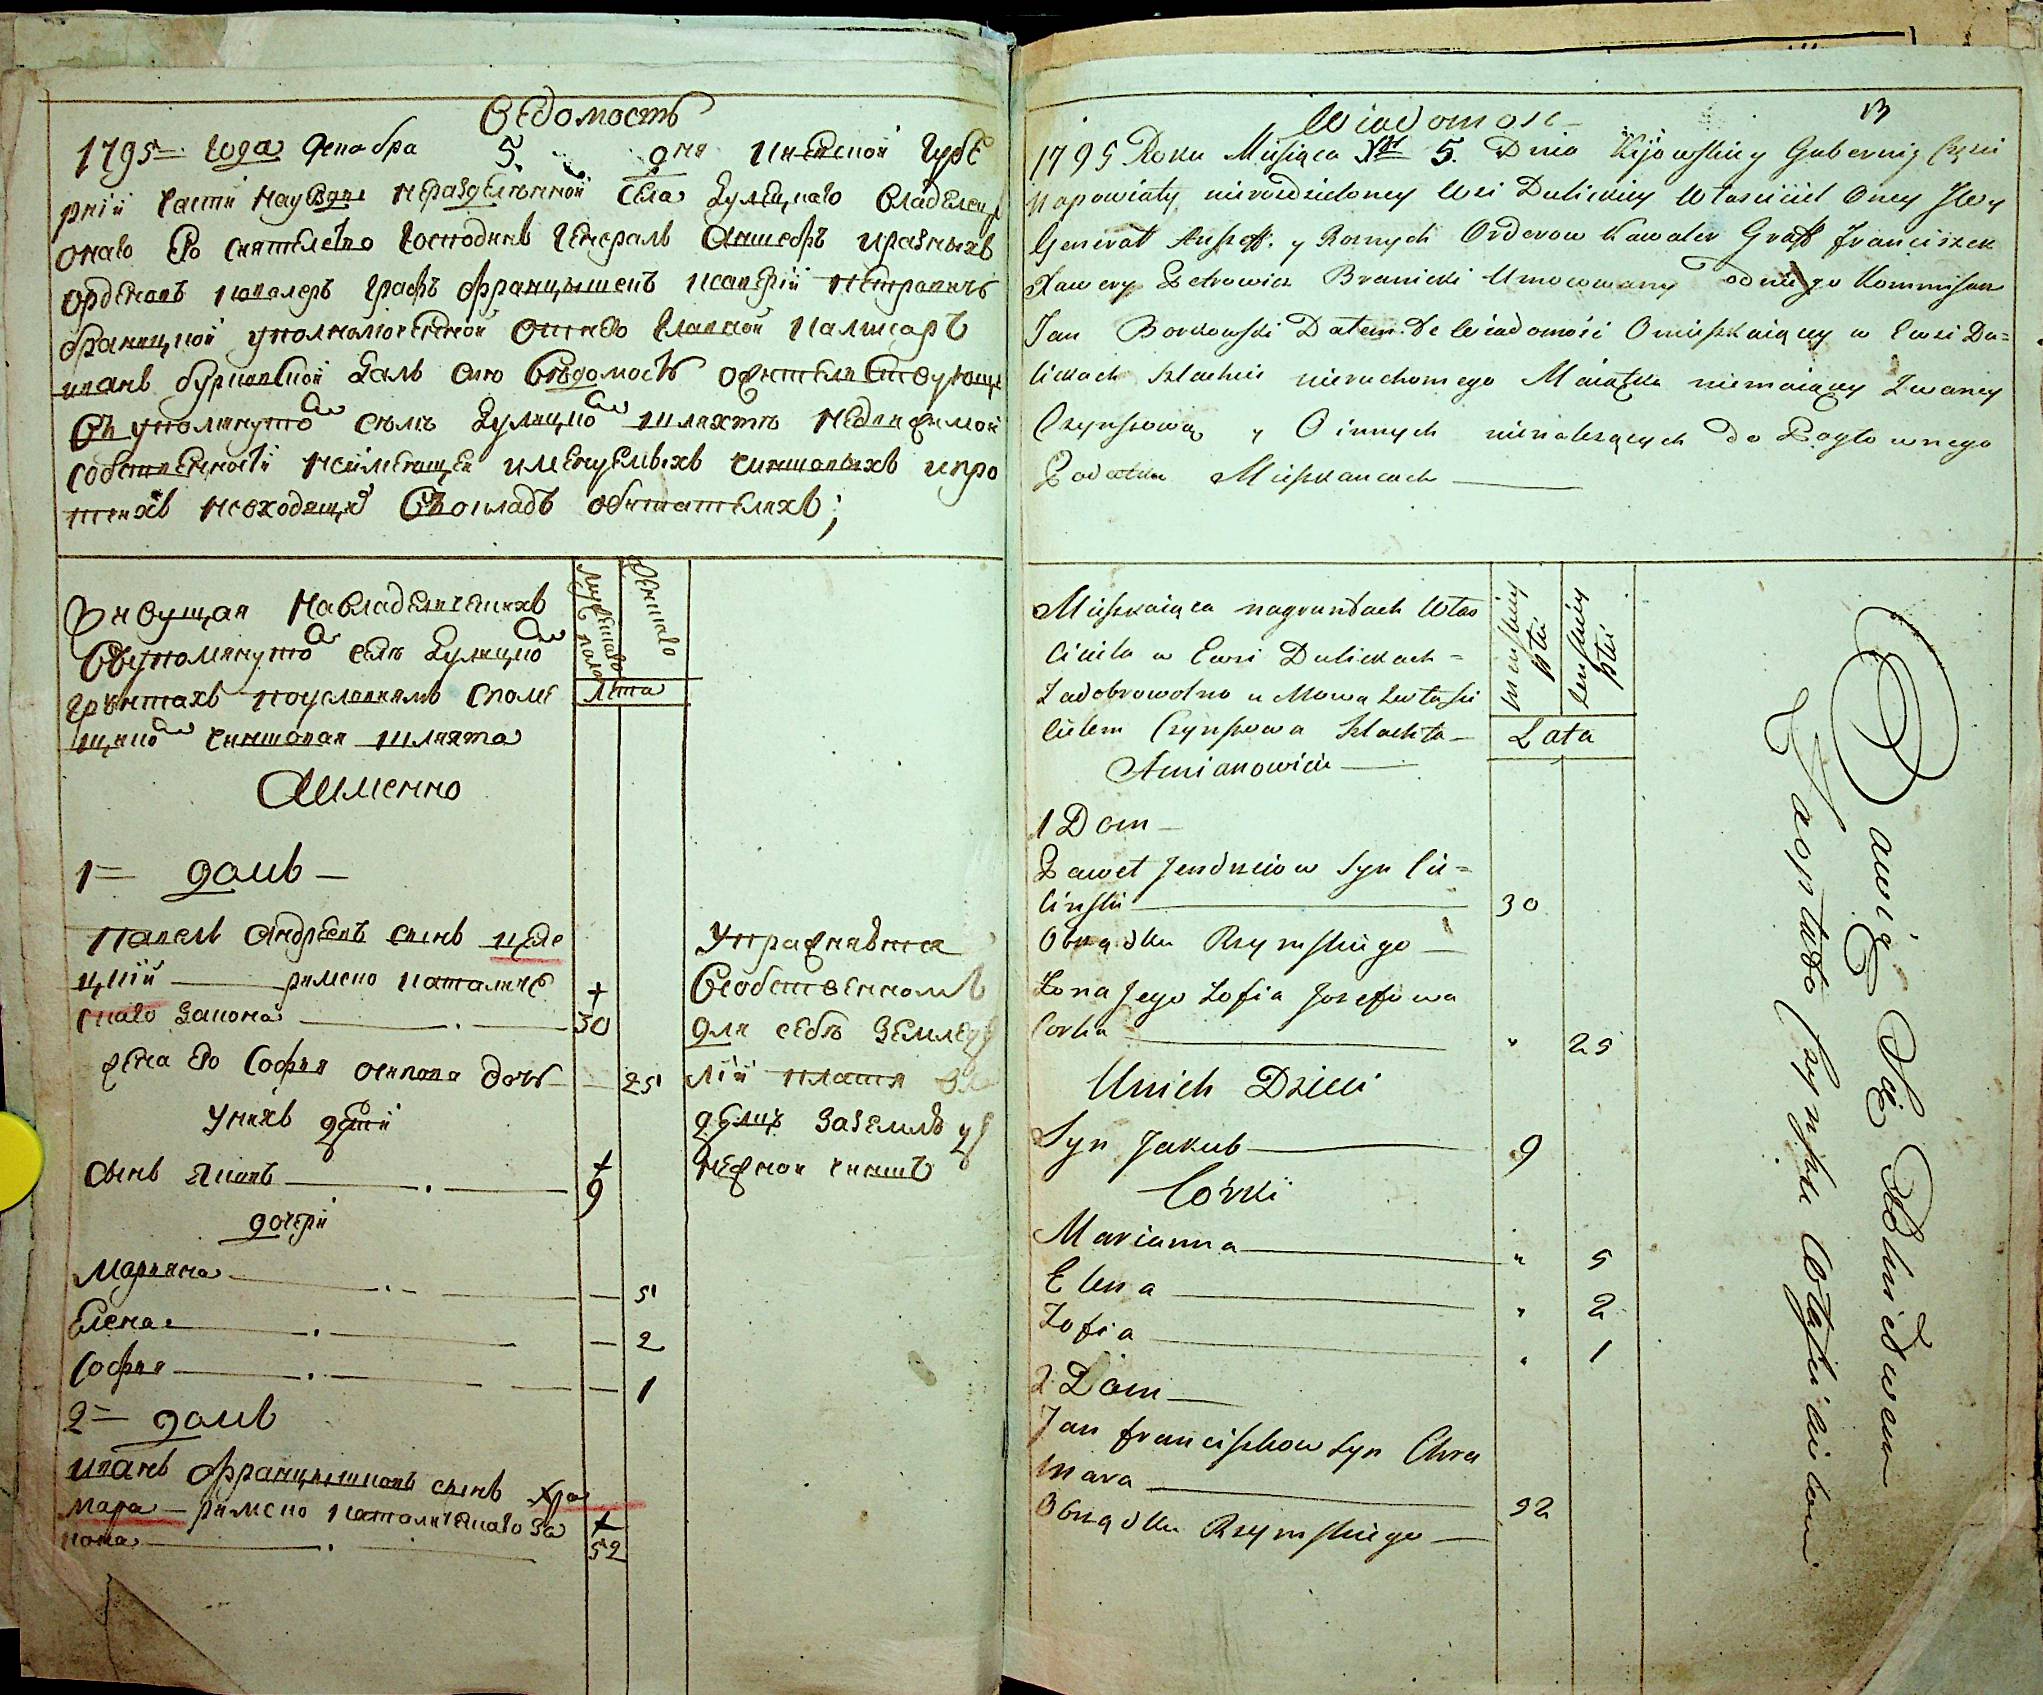 Ведомость
1795 года декабря 5. дня Киевской губе
рнии части науезди неразделенной села Дулецкаго владелец
онаго Его сиятелство господинъ генералъ аншефъ иразныхъ
орденовъ кавалеръ графъ Францышекъ Ксаверий Петровичъ
Браницкой уполномоченной отнего главной камисаръ
иванъ Бурковской далъ сию ведомость обжительствующе
въ упомянутой селе Дулицкой шляхте недвижимой
собственности неимеющей именуемыхъ чиншовыхъ ипро
тчихъ невходящие въ окладъ обитателяхъ;
Живущая навладелческихъ
въупомянутой селе Дулицкой
грунтахъ поусловиямъ споме
щикой чиншовая шляхта
Аименно
мужеска пола
женска
лета
1 = домъ —
Павелъ Андреевъ сынъ Целе
цкий — римско католиче
скаго закона — 30
жена Его София осипова дочь — 25
Унихъ дети
сынъ Яковъ — 9
дочери
Марияна — 5
Елена — 2
София — 1
2 = домъ
иванъ Францышковъ сынъ Хра
мара — римско католическаго за
кона — 52
Упражняется
всобственномъ
для себя земледе
лии платя вла
делцу заземлю
чиншъ
Wiadomosc
13
1795 Roku Miesiąca Xbr 5. Dnia Kijowskiey Gubernij Częsci
napowiaty nierozdzieloney Wsi Dulickiey Własciciel Oney JWy
Generał Anszeff. y Roznych Orderow Kawaler Graff Franciszek
Xawery Petrowicz Branicki Umocowany odniego Kommisarz
Jan Borkowski Dałem tę Wiadomość Omieszkaiącey w Ewsi Du=
lickach Szlachcie nieruchomego Maiątku niemaiącey Zwaney
Czynszową y Oinnych nienalezących do Pogłownego
Podatku Mieszkancach —
Mieszkaiąca nagruntach Włas
ciciela w Ewsi Dulickach =
Zadobrowolno u Mową zwłasci
cielem Czynszowa Szlachta —
Amianowicie —
menskiey płci
zenskiey płci
Lata
1 Dom —
Paweł Jendrzeiow Syn Cie=
linski — 30
Obrządku Rzymskiego —
Zona Jego Zofia Jozefowa
Corka — " 25
Unich Dzieci
Syn Jakub — 9
Córki
Marianna — " 5
Elena — " 2
Zofia — " 1
2 Dom —
Jan Franciszkow Syn Chra
mara — 52
Obrządku Rzymskiego —
Bawią Się Rolnictwem
Zaopłatą Czynszu Własicielowi